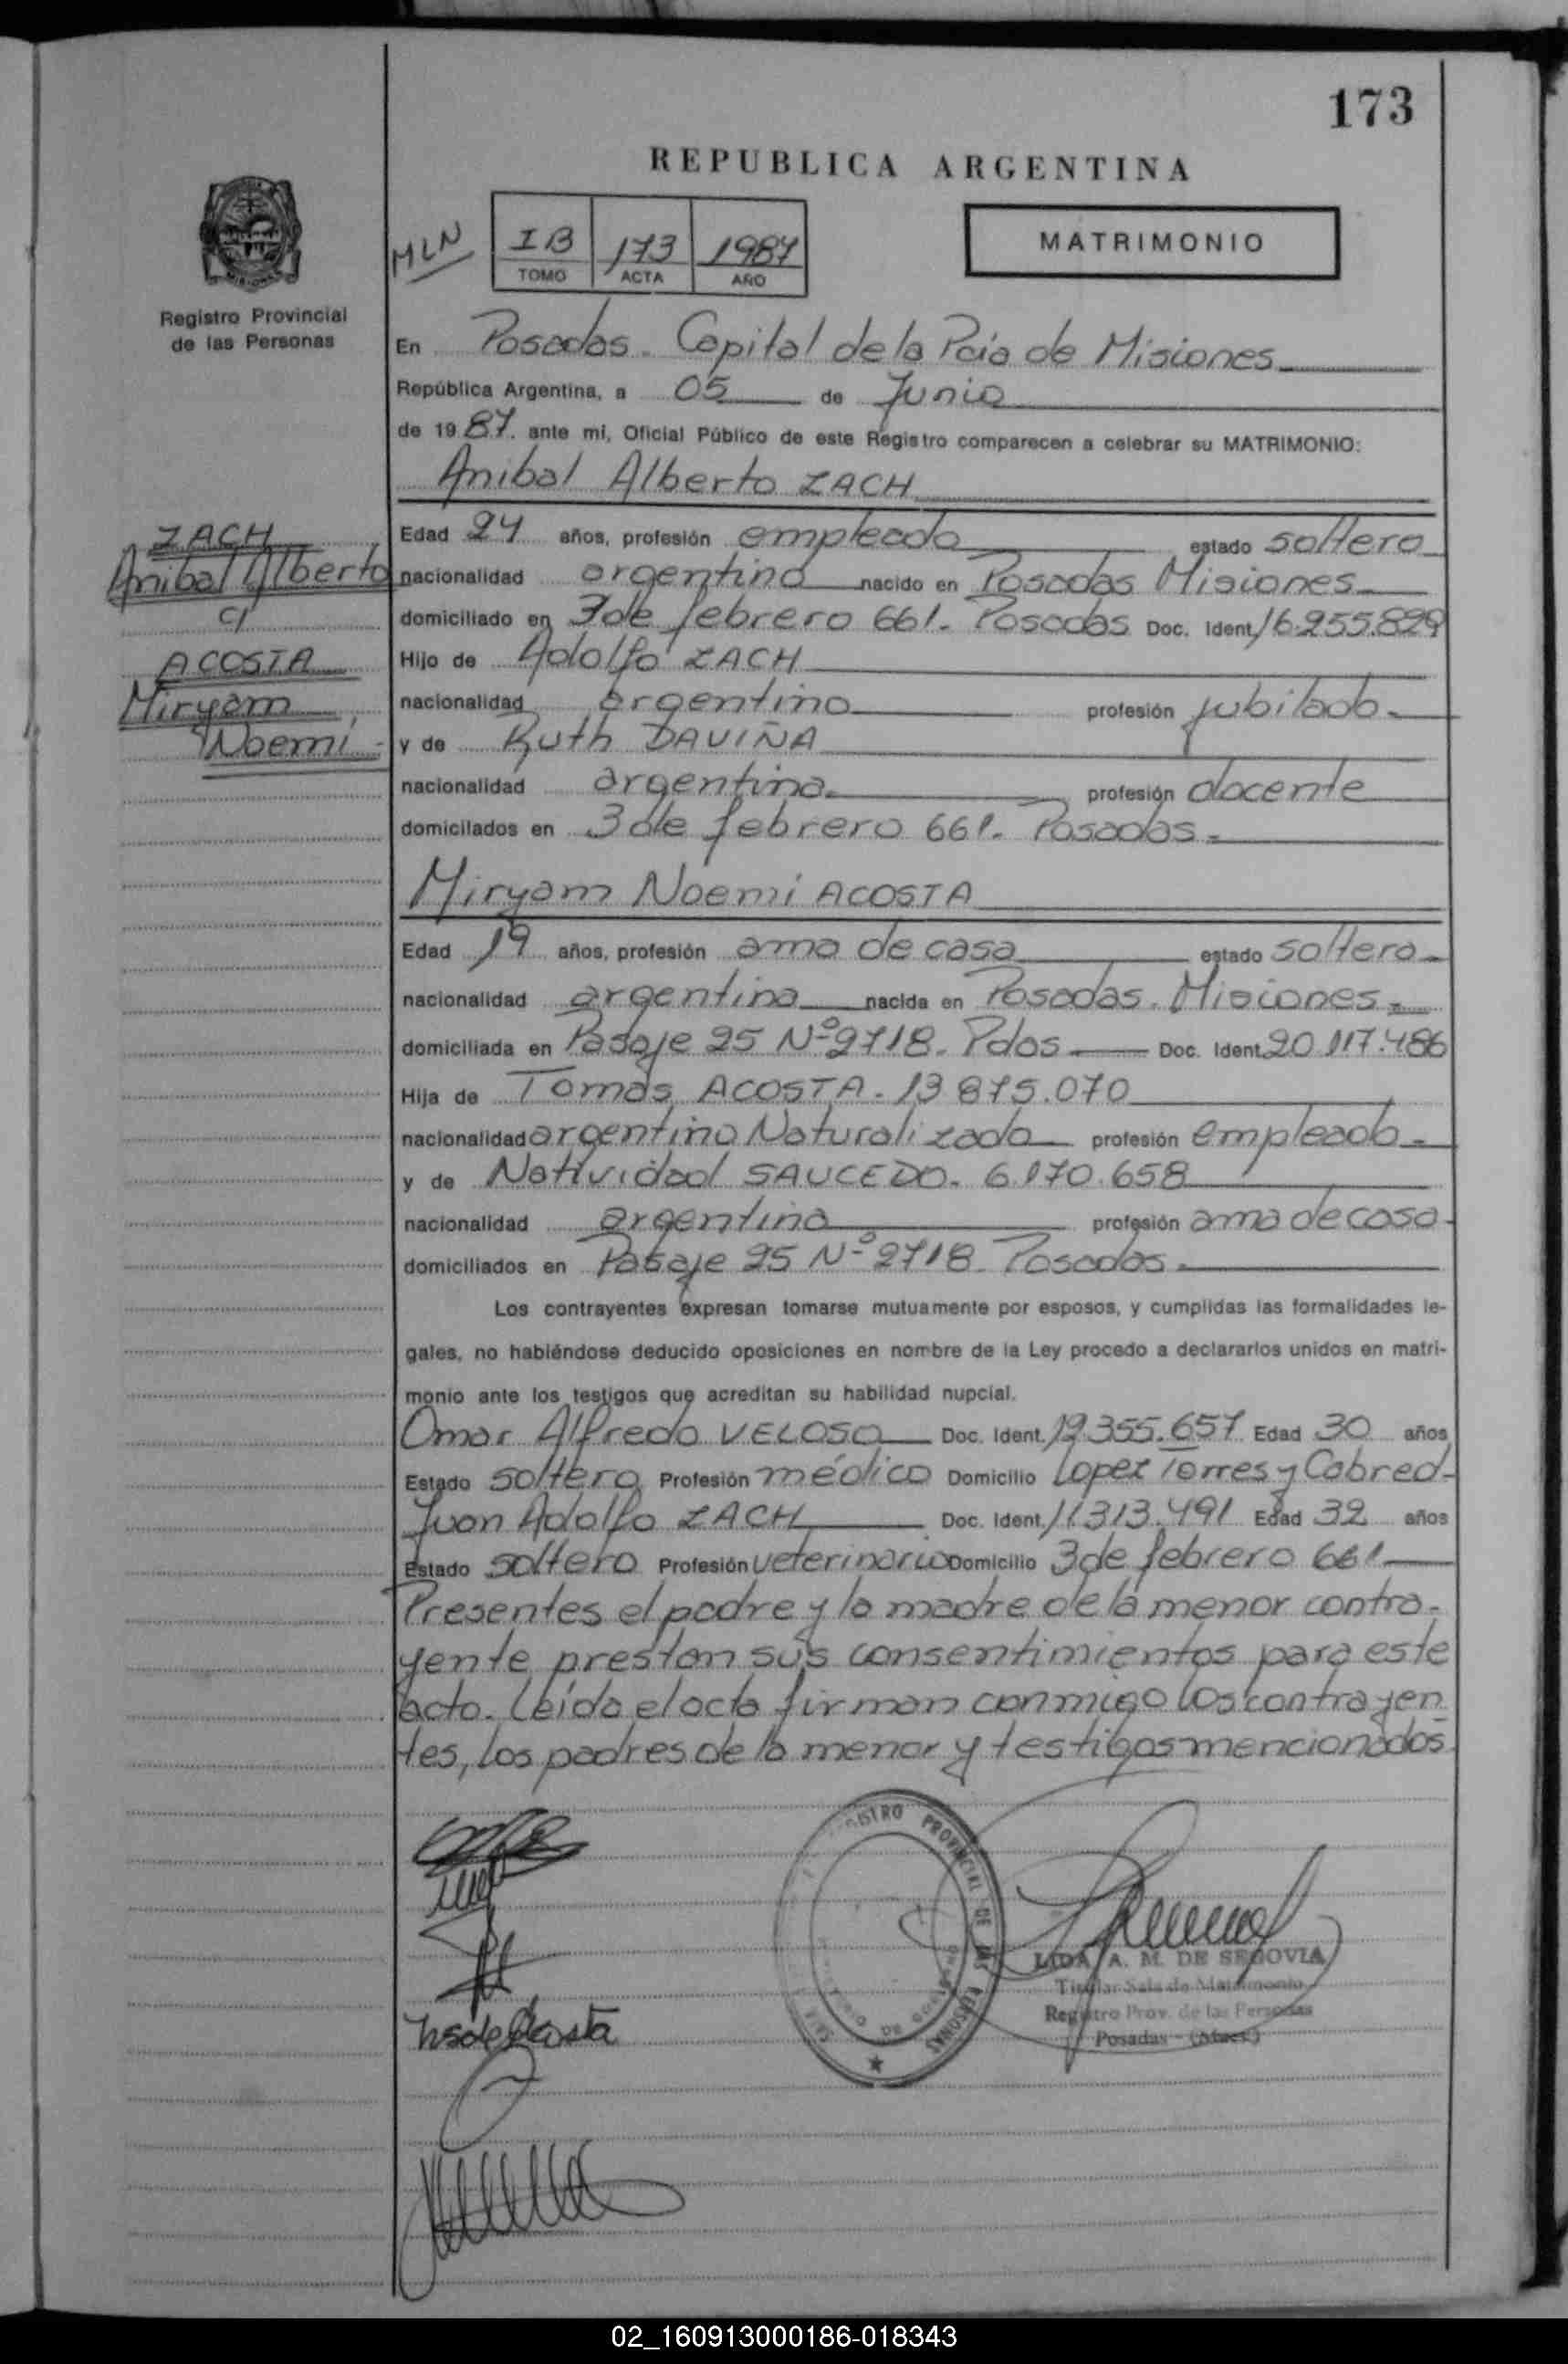 173
REPUBLICA ARGENTINA
MLN
I B 173 1987
TOMO ACTA AÑO
MATRIMONIO
Registro Provincial
de las Personas
En Posadas. Capital de la Pcia de Misiones
República Argentina, a 05 de Junio
de 19 87. ante mi, Oficial Público de este Registro comparecen a celebrar su MATRIMONIO:
Anibal Alberto ZACH
ZACH
Anibal Alberto
c/
ACOSTA
Miryam
Noemi
Edad 24 años, profesión empleado estado soltero
nacionalidad argentino nacido en Posadas Misiones
domiciliado en 3 de febrero 661. Posadas Doc. Ident. 16.255.829
Hijo de Adolfo ZACH
nacionalidad argentino profesión jubilado
y de Ruth DAVIÑA
nacionalidad argentina profesión docente
domiciliados en 3 de febrero 661. Posadas
Miryam Noemi ACOSTA
Edad 19 años, profesión ama de casa estado soltera
nacionalidad argentina nacida en Posadas. Misiones
domiciliada en Pasaje 25 Nº 2718. Pdas Doc. Ident. 20.117.486
Hija de Tomás ACOSTA. 13.875.070
nacionalidad argentino Naturalizado profesión empleado
y de Natividad SAUCEDO. 6.170.658
nacionalidad argentina profesión ama de casa
domiciliados en Pasaje 25 Nº 2718 Posadas
Los contrayentes expresan tomarse mutuamente por esposos, y cumplidas las formalidades le-
gales, no habiéndose deducido oposiciones en nombre de la Ley procedo a declararlos unidos en matri-
monio ante los testigos que acreditan su habilidad nupcial.
Omar Alfredo VELOSO Doc. Ident. 12.355.657 Edad 30 años
Estado soltero Profesión médico Domicilio Lopez Torres y Cabred
Juan Adolfo ZACH Doc. Ident. 11.313.491 Edad 32 años
Estado soltero Profesión veterinario Domicilio 3 de febrero 661
Presentes el padre y la madre de la menor contra-
yente prestan sus consentimientos para este
acto. Leída el acta firman conmigo los contrayen
tes, los padres de la menor y testigos mencionados
REGISTRO PROVINCIAL DE LAS PERSONAS
LIDA A. M. DE SEGOVIA
Titular Sala de Matrimonio
Registro Prov. de las Personas
Posadas - (Mnes.)
02_160913000186-018343